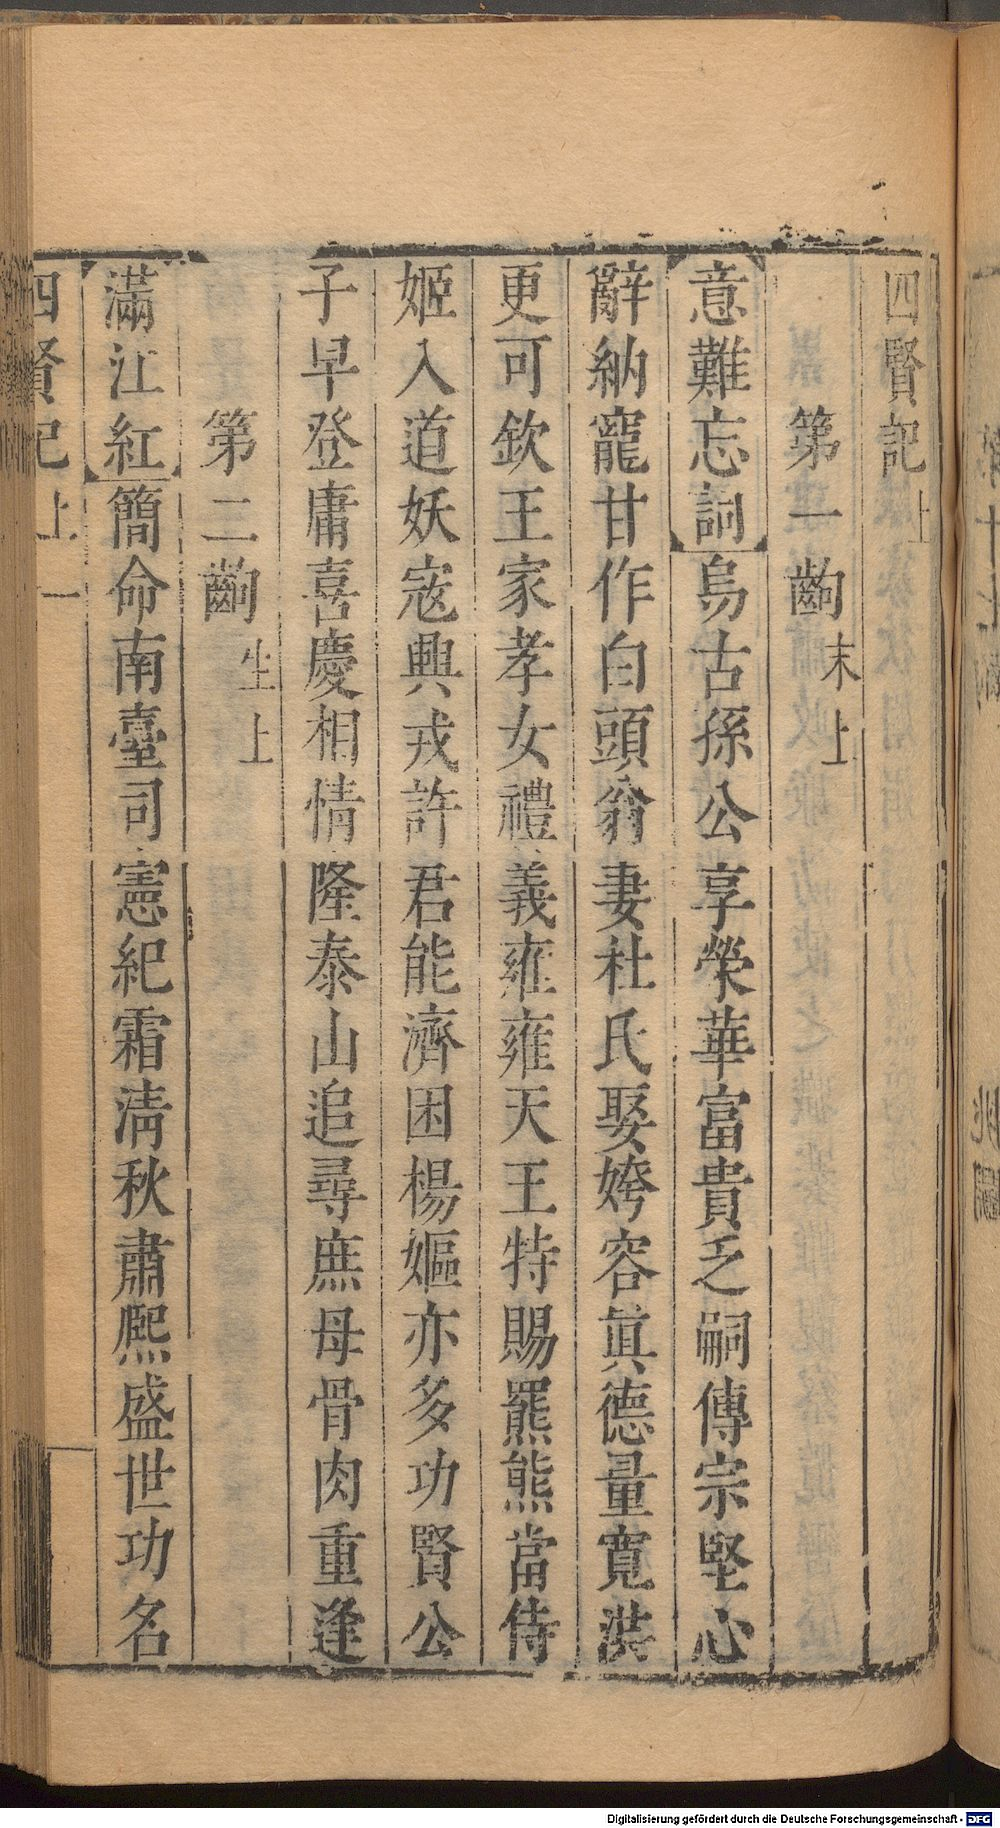 四賢記上
第一齣 末上
意難忘詞烏古孫公享榮華富貴乏嗣傳宗堅心
辭納寵甘作白頭翁妻杜氏娶姱容眞德量寬洪
更可欽王家孝女禮義雍雍天王特賜羆熊當侍
姬入道妖寇興戎許君能濟困楊嫗亦多功賢公
子早登庸喜慶相情隆泰山追尋庶母骨肉重逢
第二齣 生上
滿江紅簡命南臺司憲紀霜淸秋肅熙盛世功名
四賢記 上 一
Digitalisierung gefördert durch die Deutsche Forschungsgemeinschaft - DFG